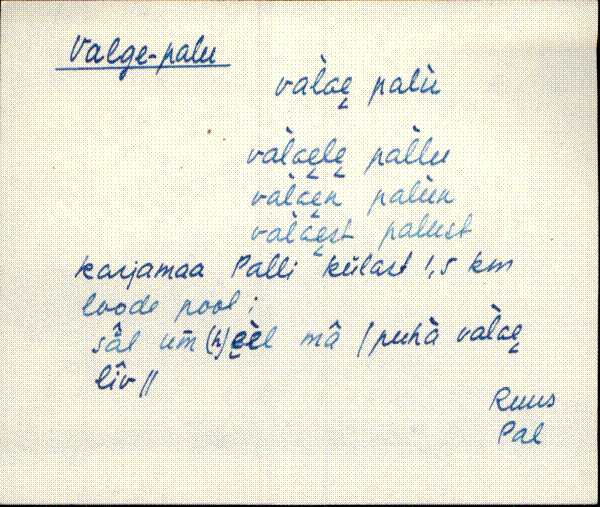 Valge-palu
vàlɢe̬ palù
vàlɢe̬le̬ pàllu
vàlɢe̬n palùn
vàlɢe̬st palust
karjamaa Palli külast 1,5 km
loode pool;
sǟl um̄ (h) e̬èl mâ / puhà vàlɢe̬
lîv //
Ruus
Pal